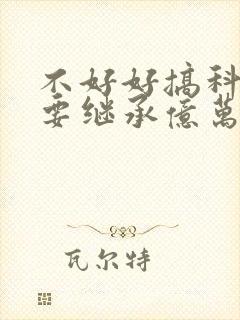 不好好搞科
要继承億萬
瓦尔特